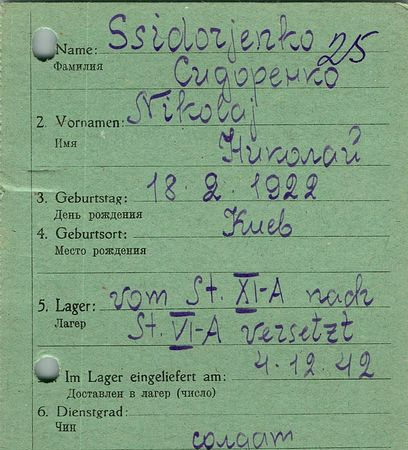 Name: Ssidorjenko 25
Фамилия Сидоренко
2. Vornamen: Nikolaj
Имя Николай
3. Geburtstag: 18. 2. 1922
День рождения
4. Geburtsort: Киев
Место рождения
5. Lager: vom St. XI-A nach
Лагер St. VI-A versetzt
Im Lager eingeliefert am: 4.12.42
Доставлен в лагер (число)
6. Dienstgrad:
Чин солдат